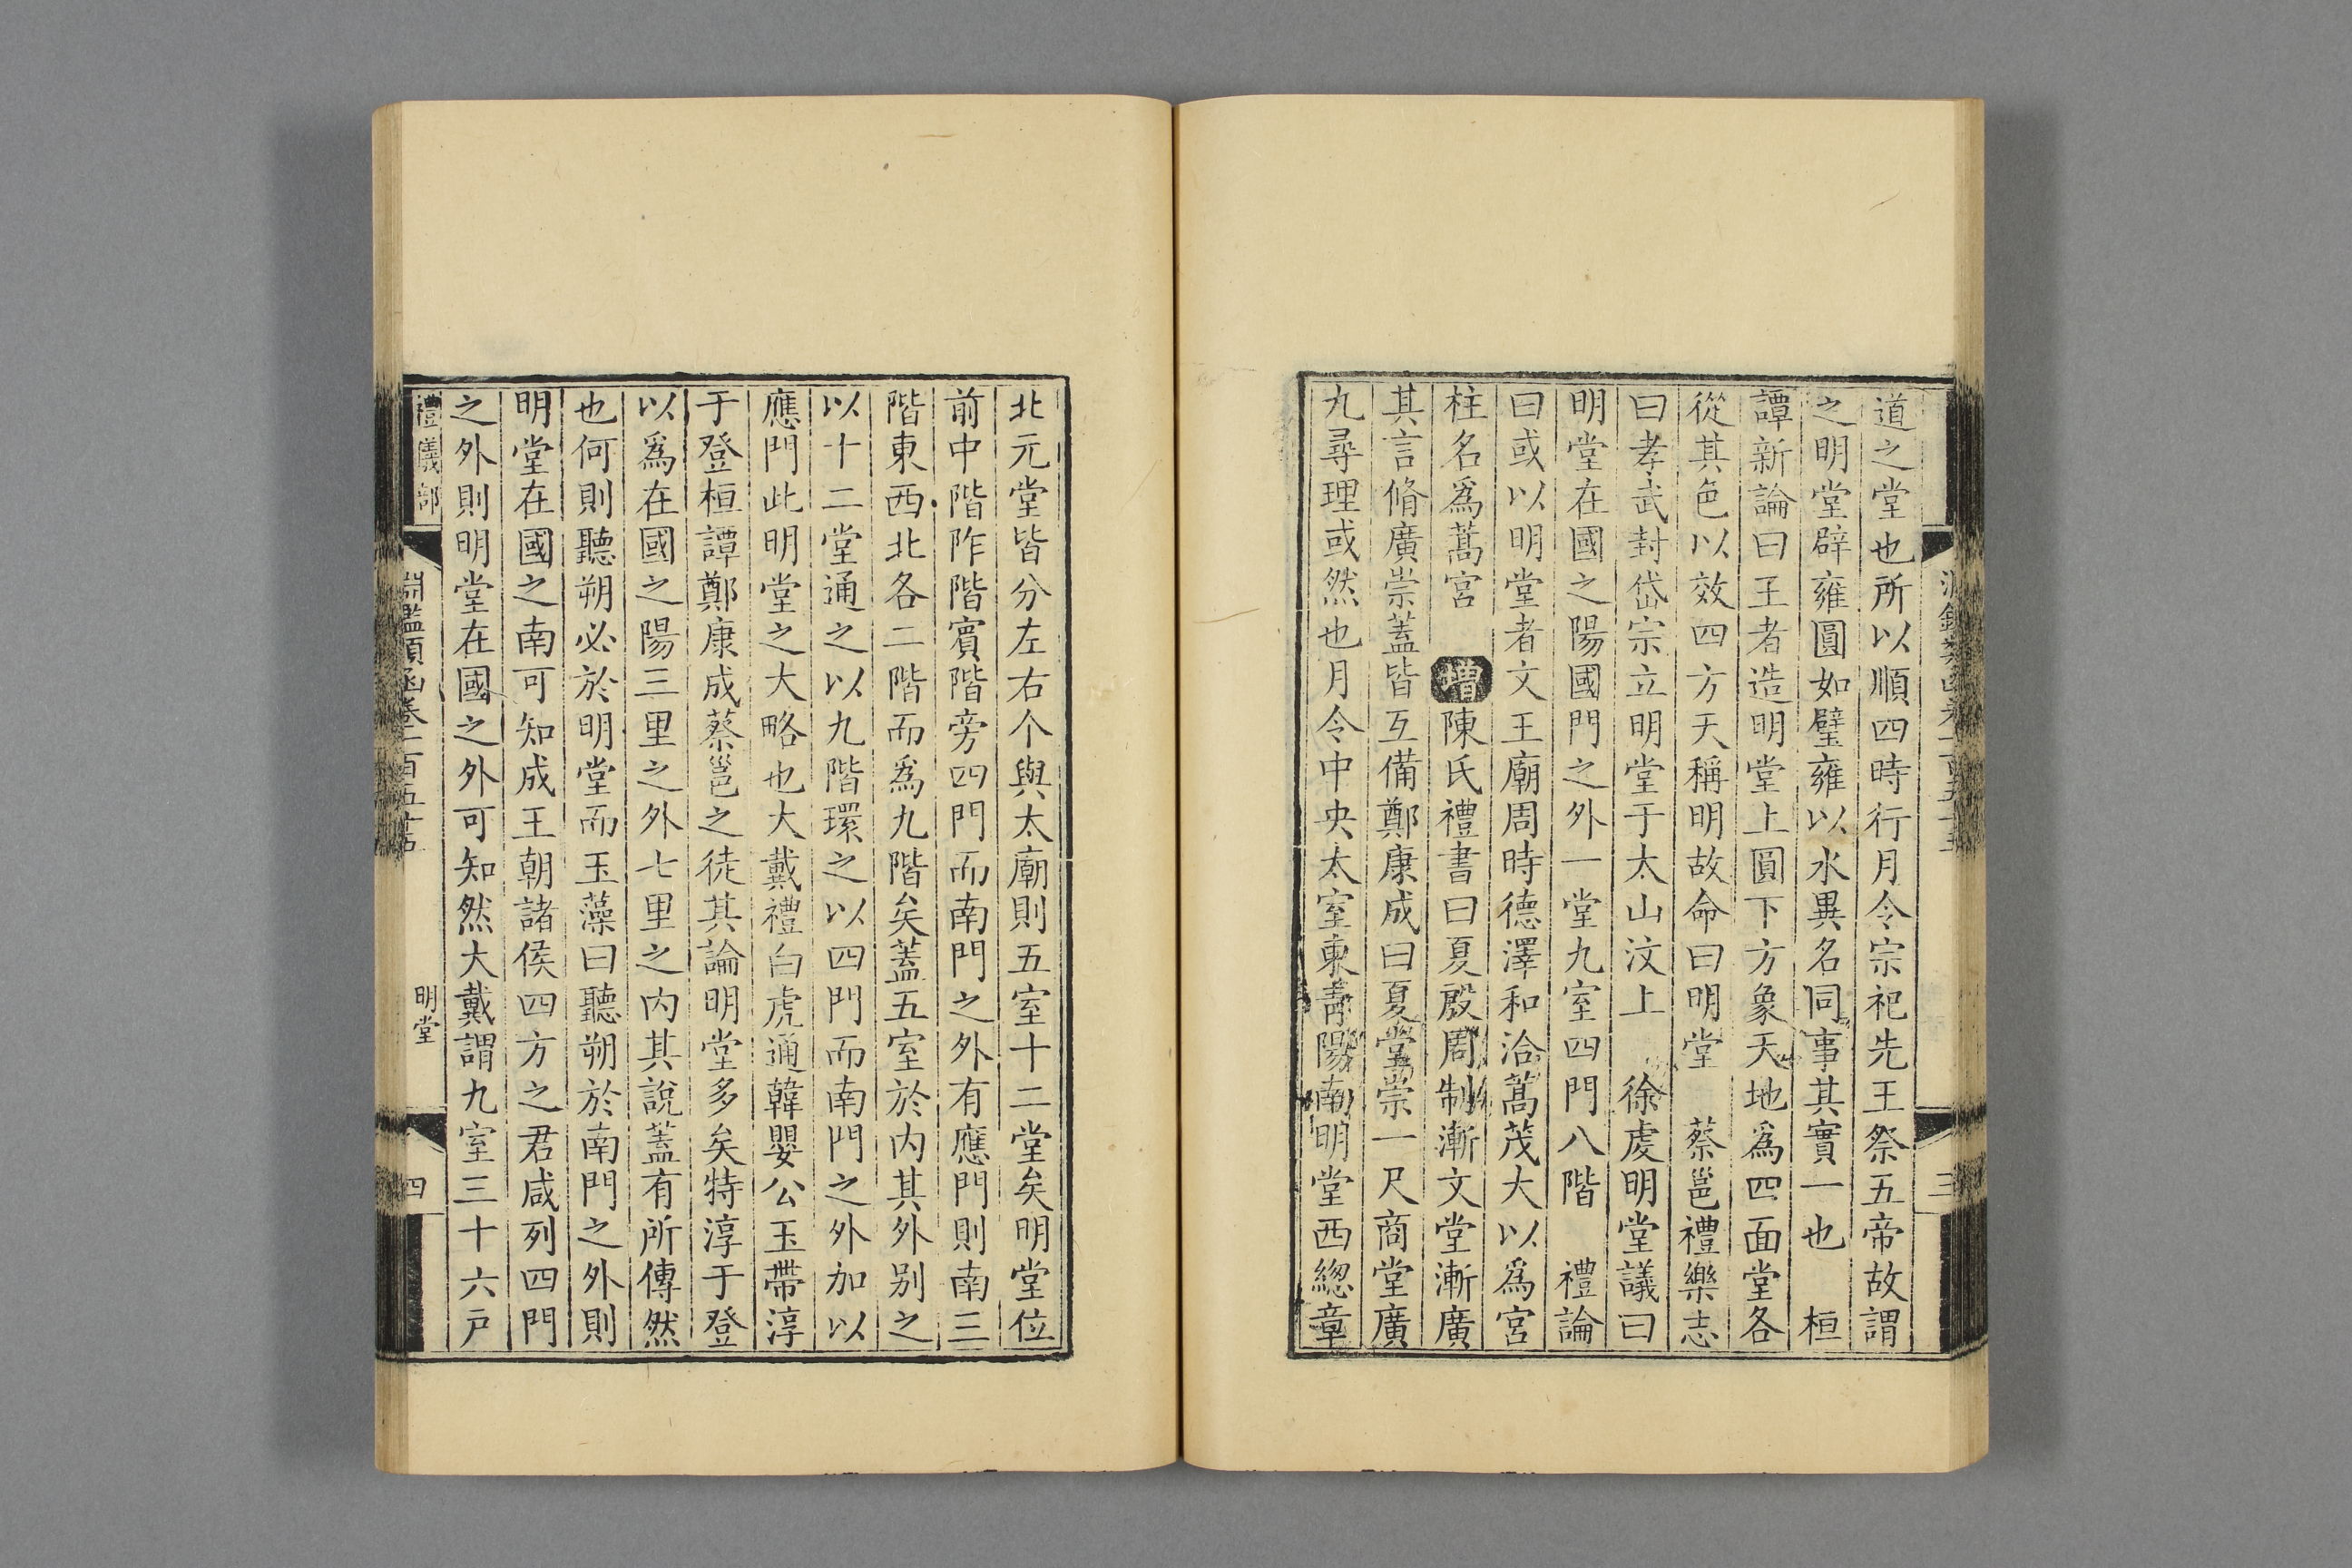 道之堂也所以順四時行月令宗祀先王祭五帝故謂
之明堂辟雍圓如璧雍以水異名同事其實一也　桓
譚新論曰王者造明堂上圓下方象天地為四面堂各
從其色以效四方天稱明故命曰明堂　蔡邕禮樂志
曰孝武封岱宗立明堂于太山汶上　徐虔明堂議曰
明堂在國之陽國門之外一堂九室四門八階　禮論
曰或以明堂者文王廟周時德澤和洽蒿茂大以為宮
柱名為蒿宮　增陳氏禮書曰夏殷周制漸文堂漸廣
其言脩廣崇蓋皆互備鄭康成曰夏堂崇一尺商堂廣
九尋理或然也月令中央太室東青陽南明堂西總章
三
北元堂皆分左右个與太廟則五室十二堂矣明堂位
前中階阼階賓階旁四門而南門之外有應門則南三
階東西北各二階而為九階矣蓋五室於內其外別之
以十二堂通之以九階環之以四門而南門之外加以
應門此明堂之大略也大戴禮白虎通韓嬰公玉帶淳
于登桓譚鄭康成蔡邕之徒其論明堂多矣特淳于登
以為在國之陽三里之外七里之內其說蓋有所傳然
也何則聽朔必於明堂而玉藻曰聽朔於南門之外則
明堂在國之南可知成王朝諸侯四方之君咸列四門
之外則明堂在國之外可知然大戴謂九室三十六戶
禮儀部
淵鑑類函卷一百五十
明堂
四